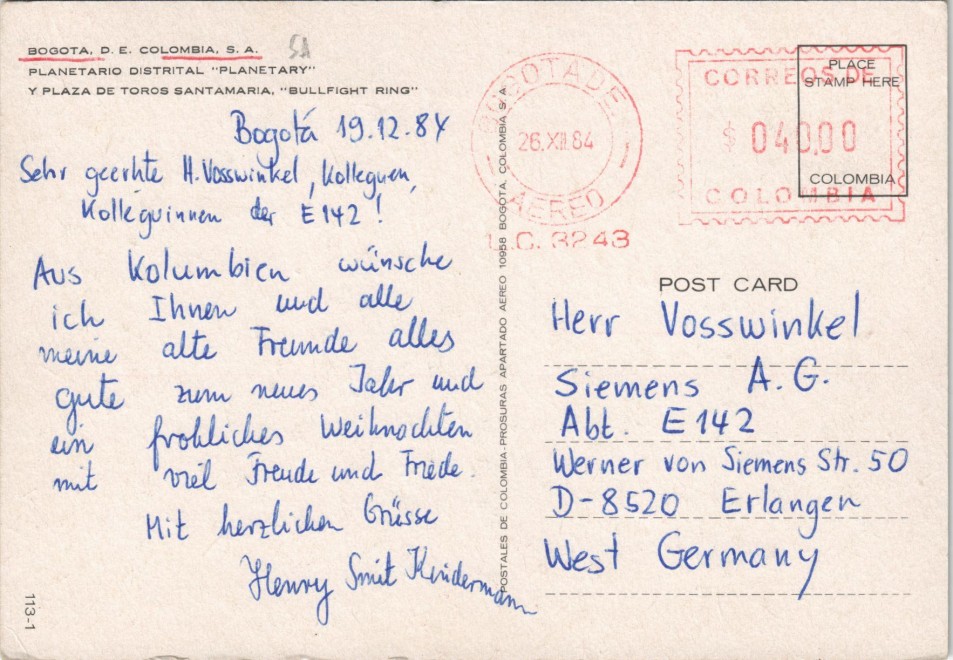 BOGOTA, D. E. COLOMBIA, S. A.
PLANETARIO DISTRITAL "PLANETARY"
Y PLAZA DE TOROS SANTAMARIA, "BULLFIGHT RING"
Bogotá 19.12.84
Sehr geerhte H. Vosswinkel, Kolleguen,
Kolleguinnen der E142!
Aus Kolumbien wünsche
ich Ihnen und alle
meine alte Freunde alles
gute zum neues Jahr und
ein frohliches Weihnachten
mit viel Freude und Friede.
Mit herzlichen Grüsse
Henry Smit Kindermann
113-1
POSTALES DE COLOMBIA-PROSURAS APARTADO AEREO 10958 BOGOTA, COLOMBIA, S. A.
BOGOTA DE
26.XII.84
AEREO
L.C. 3243
CORREOS DE
$ 040,00
COLOMBIA
PLACE
STAMP HERE
COLOMBIA
POST CARD
Herr Vosswinkel
Siemens A.G.
Abt. E142
Werner von Siemens Str. 50
D-8520 Erlangen
West Germany